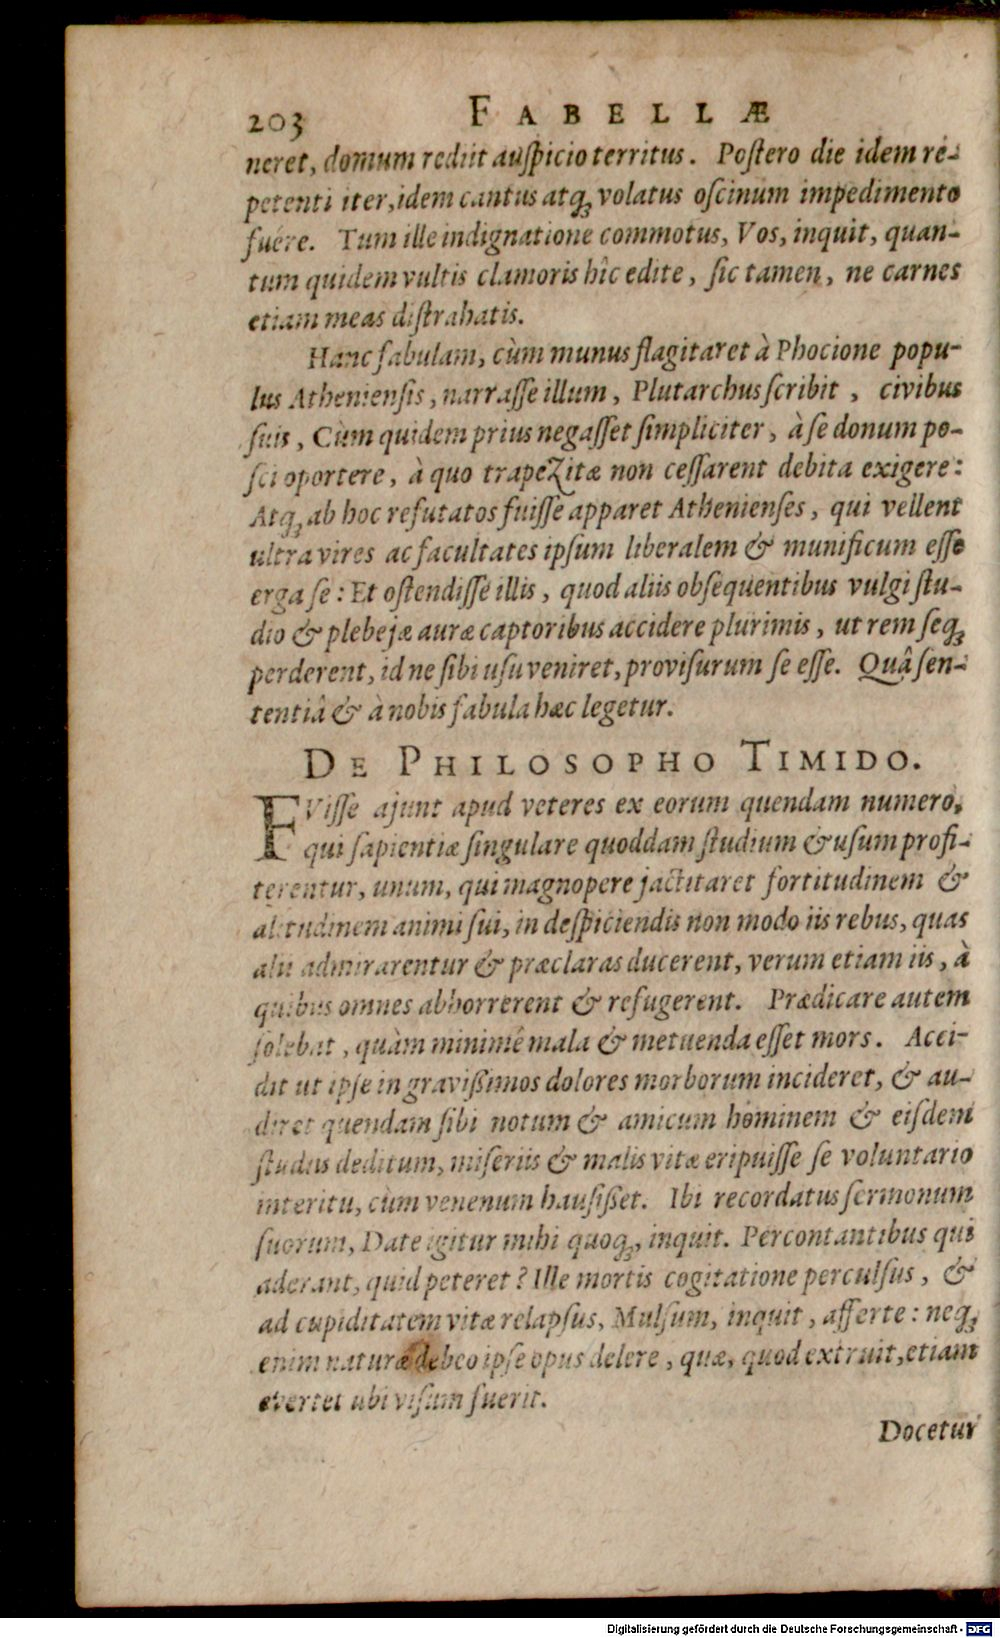 203 FABELLÆ
neret, domum rediit auſpicio territus. Poſtero die idem re-
petenti iter, idem cantus atq; volatus oſcinum impedimento
fuére. Tum ille indignatione commotus, Vos, inquit, quan-
tum quidem vultis clamoris hîc edite, ſic tamen, ne carnes
etiam meas diſtrahatis.
Hanc fabulam, cùm munus flagitaret à Phocione popu-
lus Athenienſis, narraſſe illum, Plutarchus ſcribit, civibus
ſuis, Cùm quidem prius negaſſet ſimpliciter, à ſe donum po-
ſci oportere, à quo trapezitæ non ceſſarent debita exigere:
Atq; ab hoc refutatos fuiſſe apparet Athenienſes, qui vellent
ultra vires ac facultates ipſum liberalem & munificum eſſe
erga ſe: Et oſtendiſſe illis, quod aliis obſequentibus vulgi ſtu-
dio & plebejæ auræ captoribus accidere plurimis, ut rem ſeq;
perderent, id ne ſibi uſu veniret, proviſurum ſe eſſe. Quâ ſen-
tentiâ & à nobis fabula hæc legetur.
DE PHILOSOPHO TIMIDO.
FViſſe ajunt apud veteres ex eorum quendam numero,
qui ſapientiæ ſingulare quoddam ſtudium & uſum profi-
terentur, unum, qui magnopere jactitaret fortitudinem &
altitudinem animi ſui, in deſpiciendis non modo iis rebus, quas
alii admirarentur & præclaras ducerent, verum etiam iis, à
quibus omnes abhorrerent & refugerent. Prædicare autem
ſolebat, quàm minimè mala & metuenda eſſet mors. Acci-
dit ut ipſe in graviſſimos dolores morborum incideret, & au-
diret quendam ſibi notum & amicum hominem & eiſdem
ſtudiis deditum, miſeriis & malis vitæ eripuiſſe ſe voluntario
interitu, cùm venenum hauſiſſet. Ibi recordatus ſermonum
ſuorum, Date igitur mihi quoq;, inquit. Percontantibus qui
aderant, quid peteret? Ille mortis cogitatione perculſus, &
ad cupiditatem vitæ relapſus, Mulſum, inquit, afferte: neq;
enim naturæ debeo ipſe opus delere, quæ, quod extruit, etiam
evertet ubi viſum fuerit.
Docetur
Digitalisierung gefördert durch die Deutsche Forschungsgemeinschaft - DFG